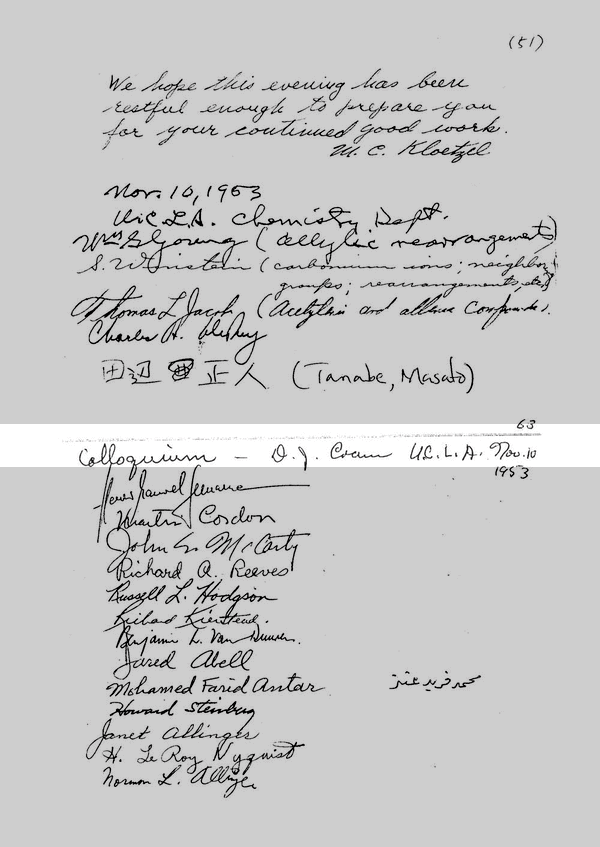 (51)
We hope this evening has been
restful enough to prepare you
for your continued good work.
M. C. Kloetzel
Nov. 10, 1953
U.C.L.A. Chemistry Dept.
Wm G Young (allylic rearrangements)
S. Winstein (carbonium ions; neighbor
groups; rearrangements, etc)
Thomas L. Jacobs (Acetylenic and allene Compounds).
Charles A.
田辺 正人 (Tanabe, Masato)
63
Colloquium – D. J. Cram U.C.L.A. Nov. 10
1953
Martin Cordon
John G. McCarty
Richard A. Reeves
Russell L. Hodgson
Richard Kierstead.
Benjamin L. Van Duuren.
Jared Abell
Mohamed Farid Antar محمد فريد عنتر
Howard Steinberg
Janet Allinger
H. LeRoy Nyquist
Norman L. Allinger